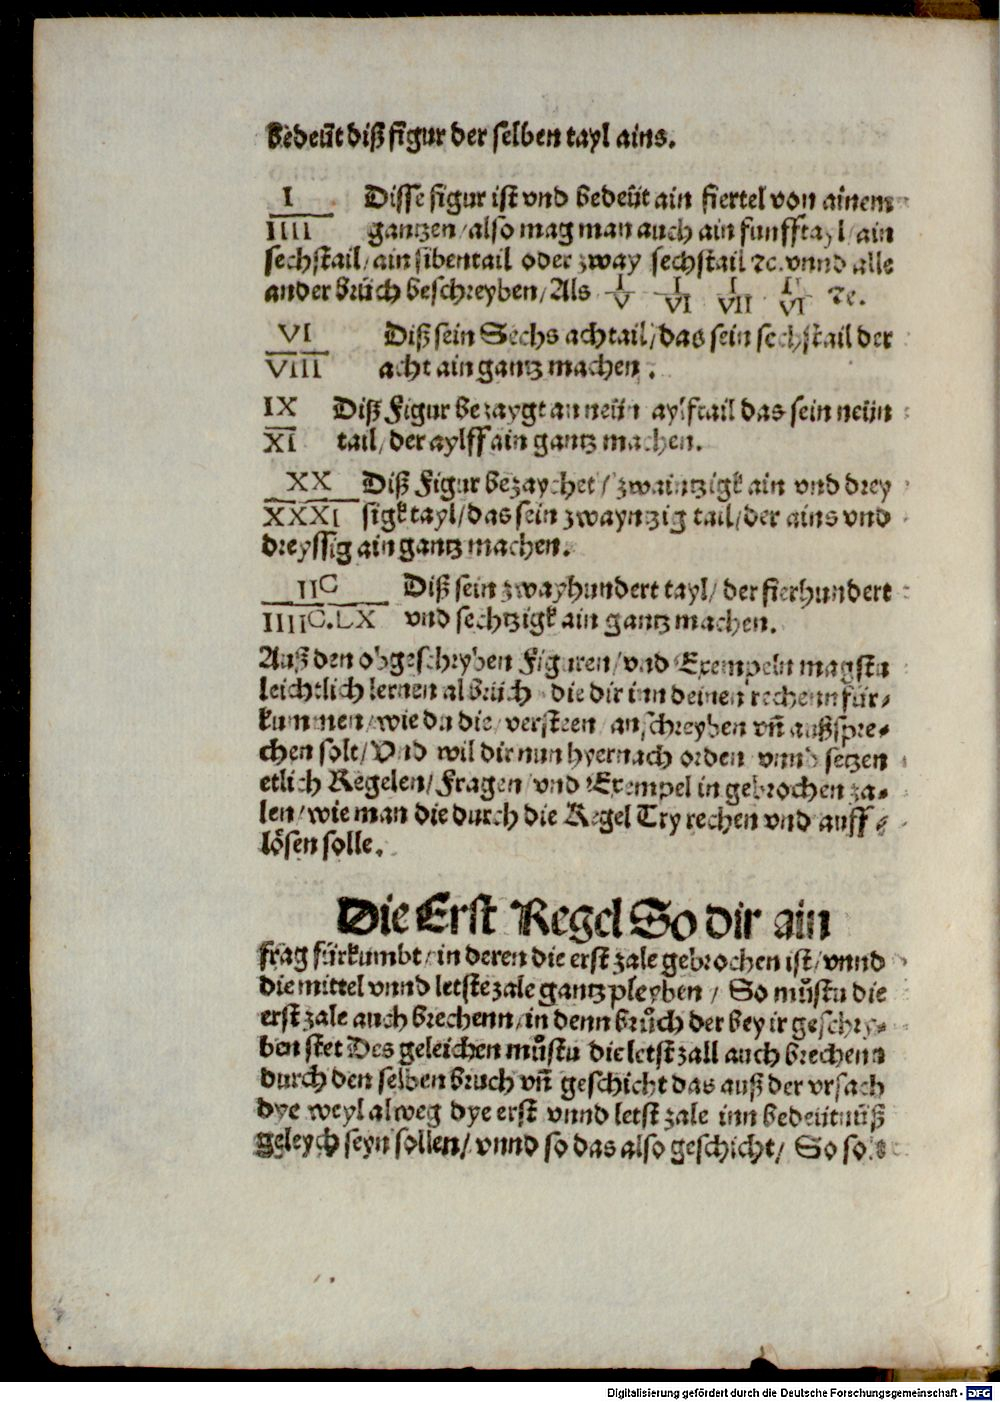 bedeüt diß figur der selben tayl ains.
I Disse figur ist vnd bedeüt ain fiertel von ainem
IIII gantzen/also mag man auch ain funfftayl/ain
sechstail/ain sibentail oder zway sechstail ꝛc. vnnd alle
ander brüch beschreyben/Als I/V I/VI I/VII II/VI ꝛc.
VI Diß sein Sechs achtail/das sein sechstail der
VIII acht ain gantz machen.
IX Diß Figur bezaygt an neün aylftail das sein neün
XI tail/der aylff ain gantz machen.
XX Diß Figur bezaychet/zwaintzigk ain vnd drey
XXXI sigk tayl/das sein zwayntzig tail/der ains vnd
dreyssig ain gantz machen.
IIC Diß sein zwayhundert tayl/der fierhundert
IIIIC.LX vnd sechtzigk ain gantz machen.
Auß den obgeschryben Figuren/vnd Exempeln magstu
leichtlich lernen al brüch die dir inn deinen rechenn für⸗
kummen/wie du die/versteen/anschreyben vñ außspre⸗
chen solt/Vnd wil dir nun hyernach orden vnnd setzen
etlich Regelen/Fragen/vnd Exempel in gebrochen za⸗
len/wie man die durch die Regel Try rechen vnd auff⸗
lösen solle.
Die Erst Regel So dir ain
frag fürkumbt/in deren die erst zale gebrochen ist/vnnd
die mittel vnnd letste zale gantz pleyben/So můstu die
erst zale auch brechenn/in denn brůch der bey ir geschry⸗
ben stet Des geleichen můstu die letst zall auch brechenn
durch den selben bruch vñ geschicht das auß der vrsach
dye weyl alweg dye erst vnnd letst zale inn bedeütnüß
geleych seyn sollen/vnnd so das also geschicht/So
Digitalisierung gefördert durch die Deutsche Forschungsgemeinschaft - DFG